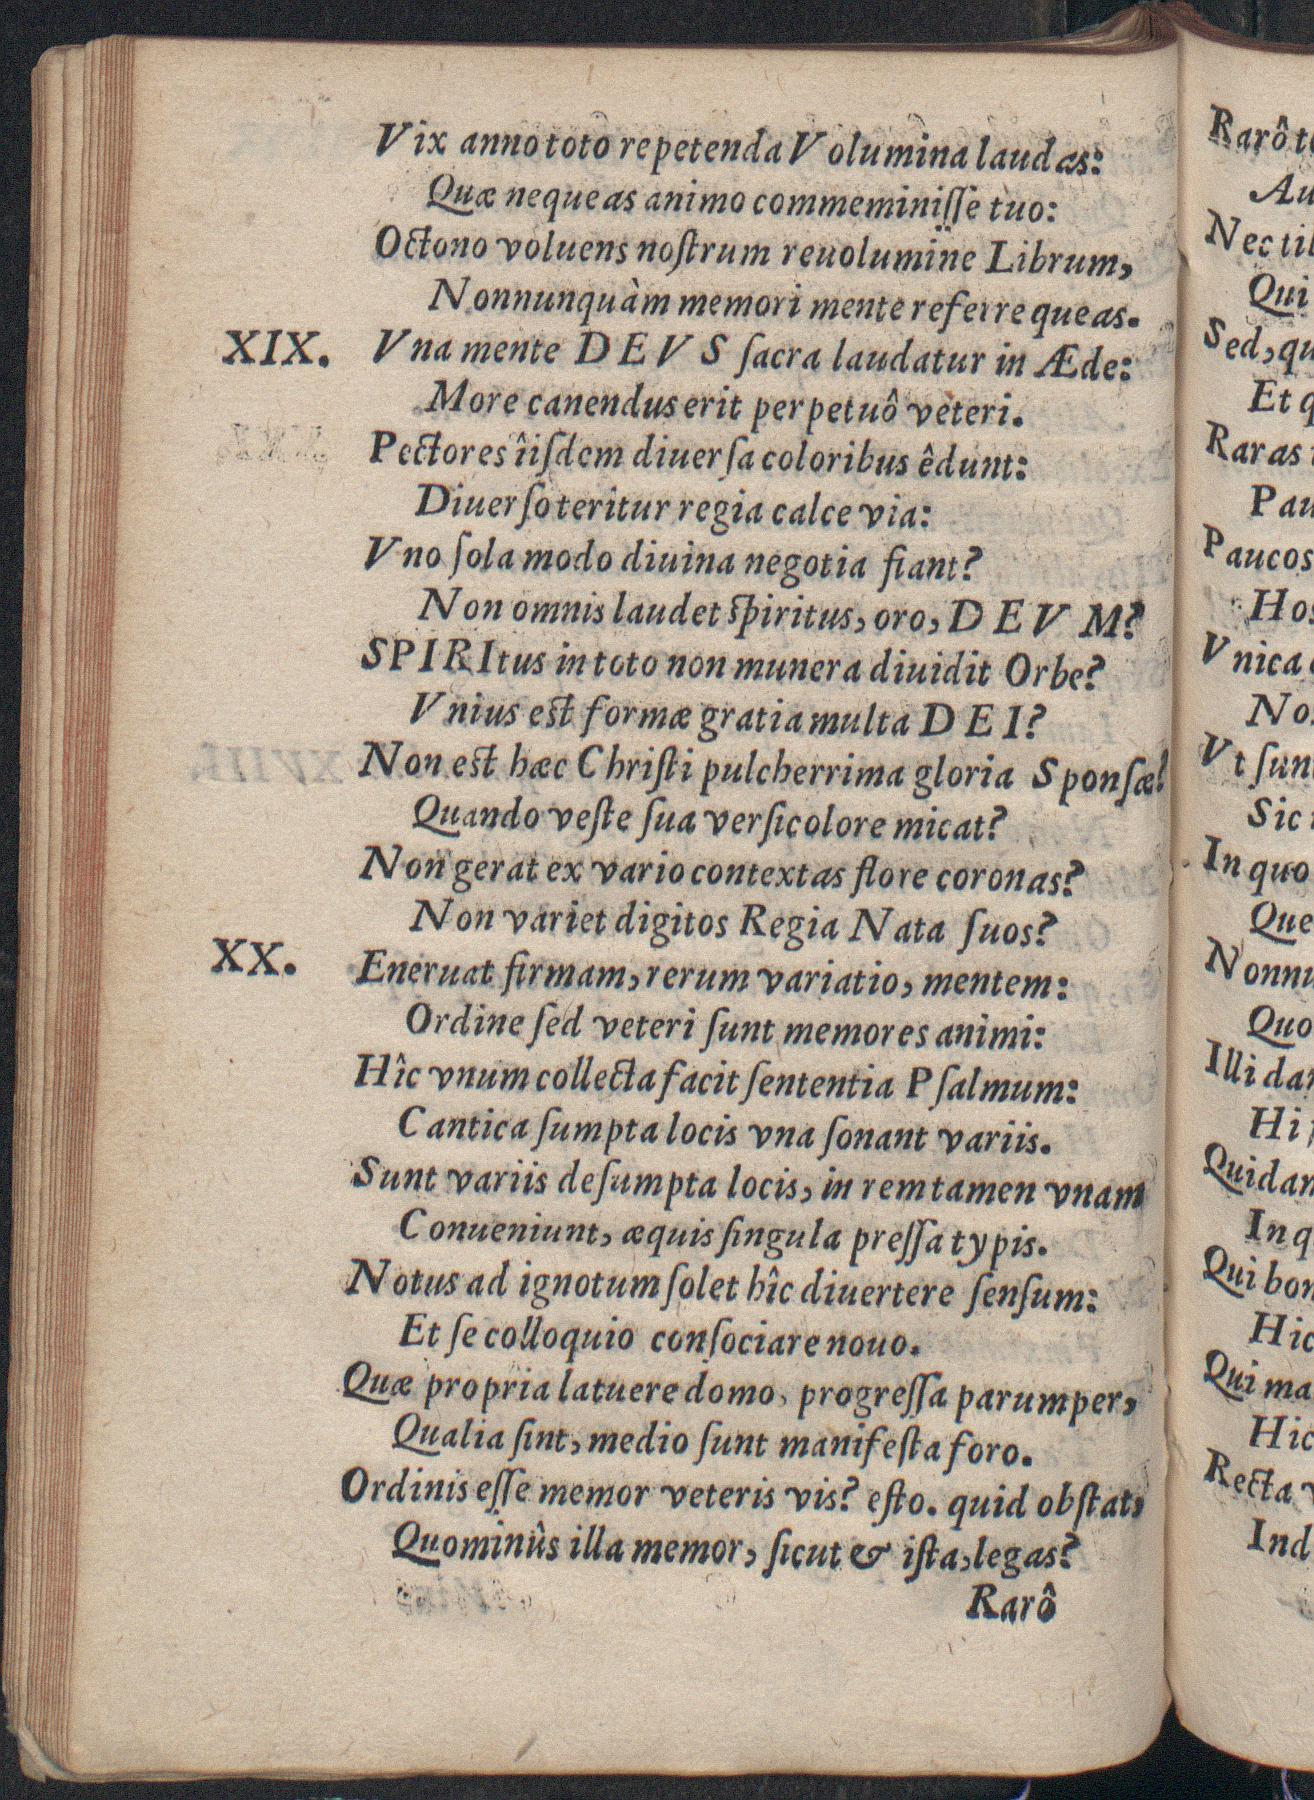 Vix anno toto repetenda Volumina laudas:
Quæ nequeas animo commeminiſſe tuo:
Octono voluens noſtrum reuolumine Librum,
Nonnunquàm memori mente referre queas.
XIX. Vna mente DEVS ſacra laudatur in Æde:
More canendus erit perpetuô veteri.
Pectores îiſdem diuerſa coloribus êdunt:
Diuerſo teritur regia calce via:
Vno ſola modo diuina negotia fiant?
Non omnis laudet ſpiritus, oro, DEVM?
SPIRItus in toto non munera diuidit Orbe?
Vnius eſt formæ gratia multa DEI?
Non eſt hæc Chriſti pulcherrima gloria Sponſæ?
Quando veſte ſua verſicolore micat?
Non gerat ex vario contextas flore coronas?
Non variet digitos Regia Nata ſuos?
XX. Eneruat firmam, rerum variatio, mentem:
Ordine ſed veteri ſunt memores animi:
Hîc vnum collecta facit ſententia Pſalmum:
Cantica ſumpta locis vna ſonant variis.
Sunt variis deſumpta locis, in rem tamen vnam
Conueniunt, æquis ſingula preſſa typis.
Notus ad ignotum ſolet hîc diuertere ſenſum:
Et ſe colloquio conſociare nouo.
Quæ propria latuere domo, progreſſa parumper,
Qualia ſint, medio ſunt manifeſta foro.
Ordinis eſſe memor veteris vis? eſto. quid obſtat,
Quominûs illa memor, ſicut & iſta, legas?
Rarô
Rarô
Nec
Qui
Sed, qu
Et q
Raras
Pau
Paucos
Hos
Vnica
Vt ſun
Sic
In quo
Que
Quo
Illi
Hi
In q
Qui
Hic
Qui
Hic
Recta
Ind